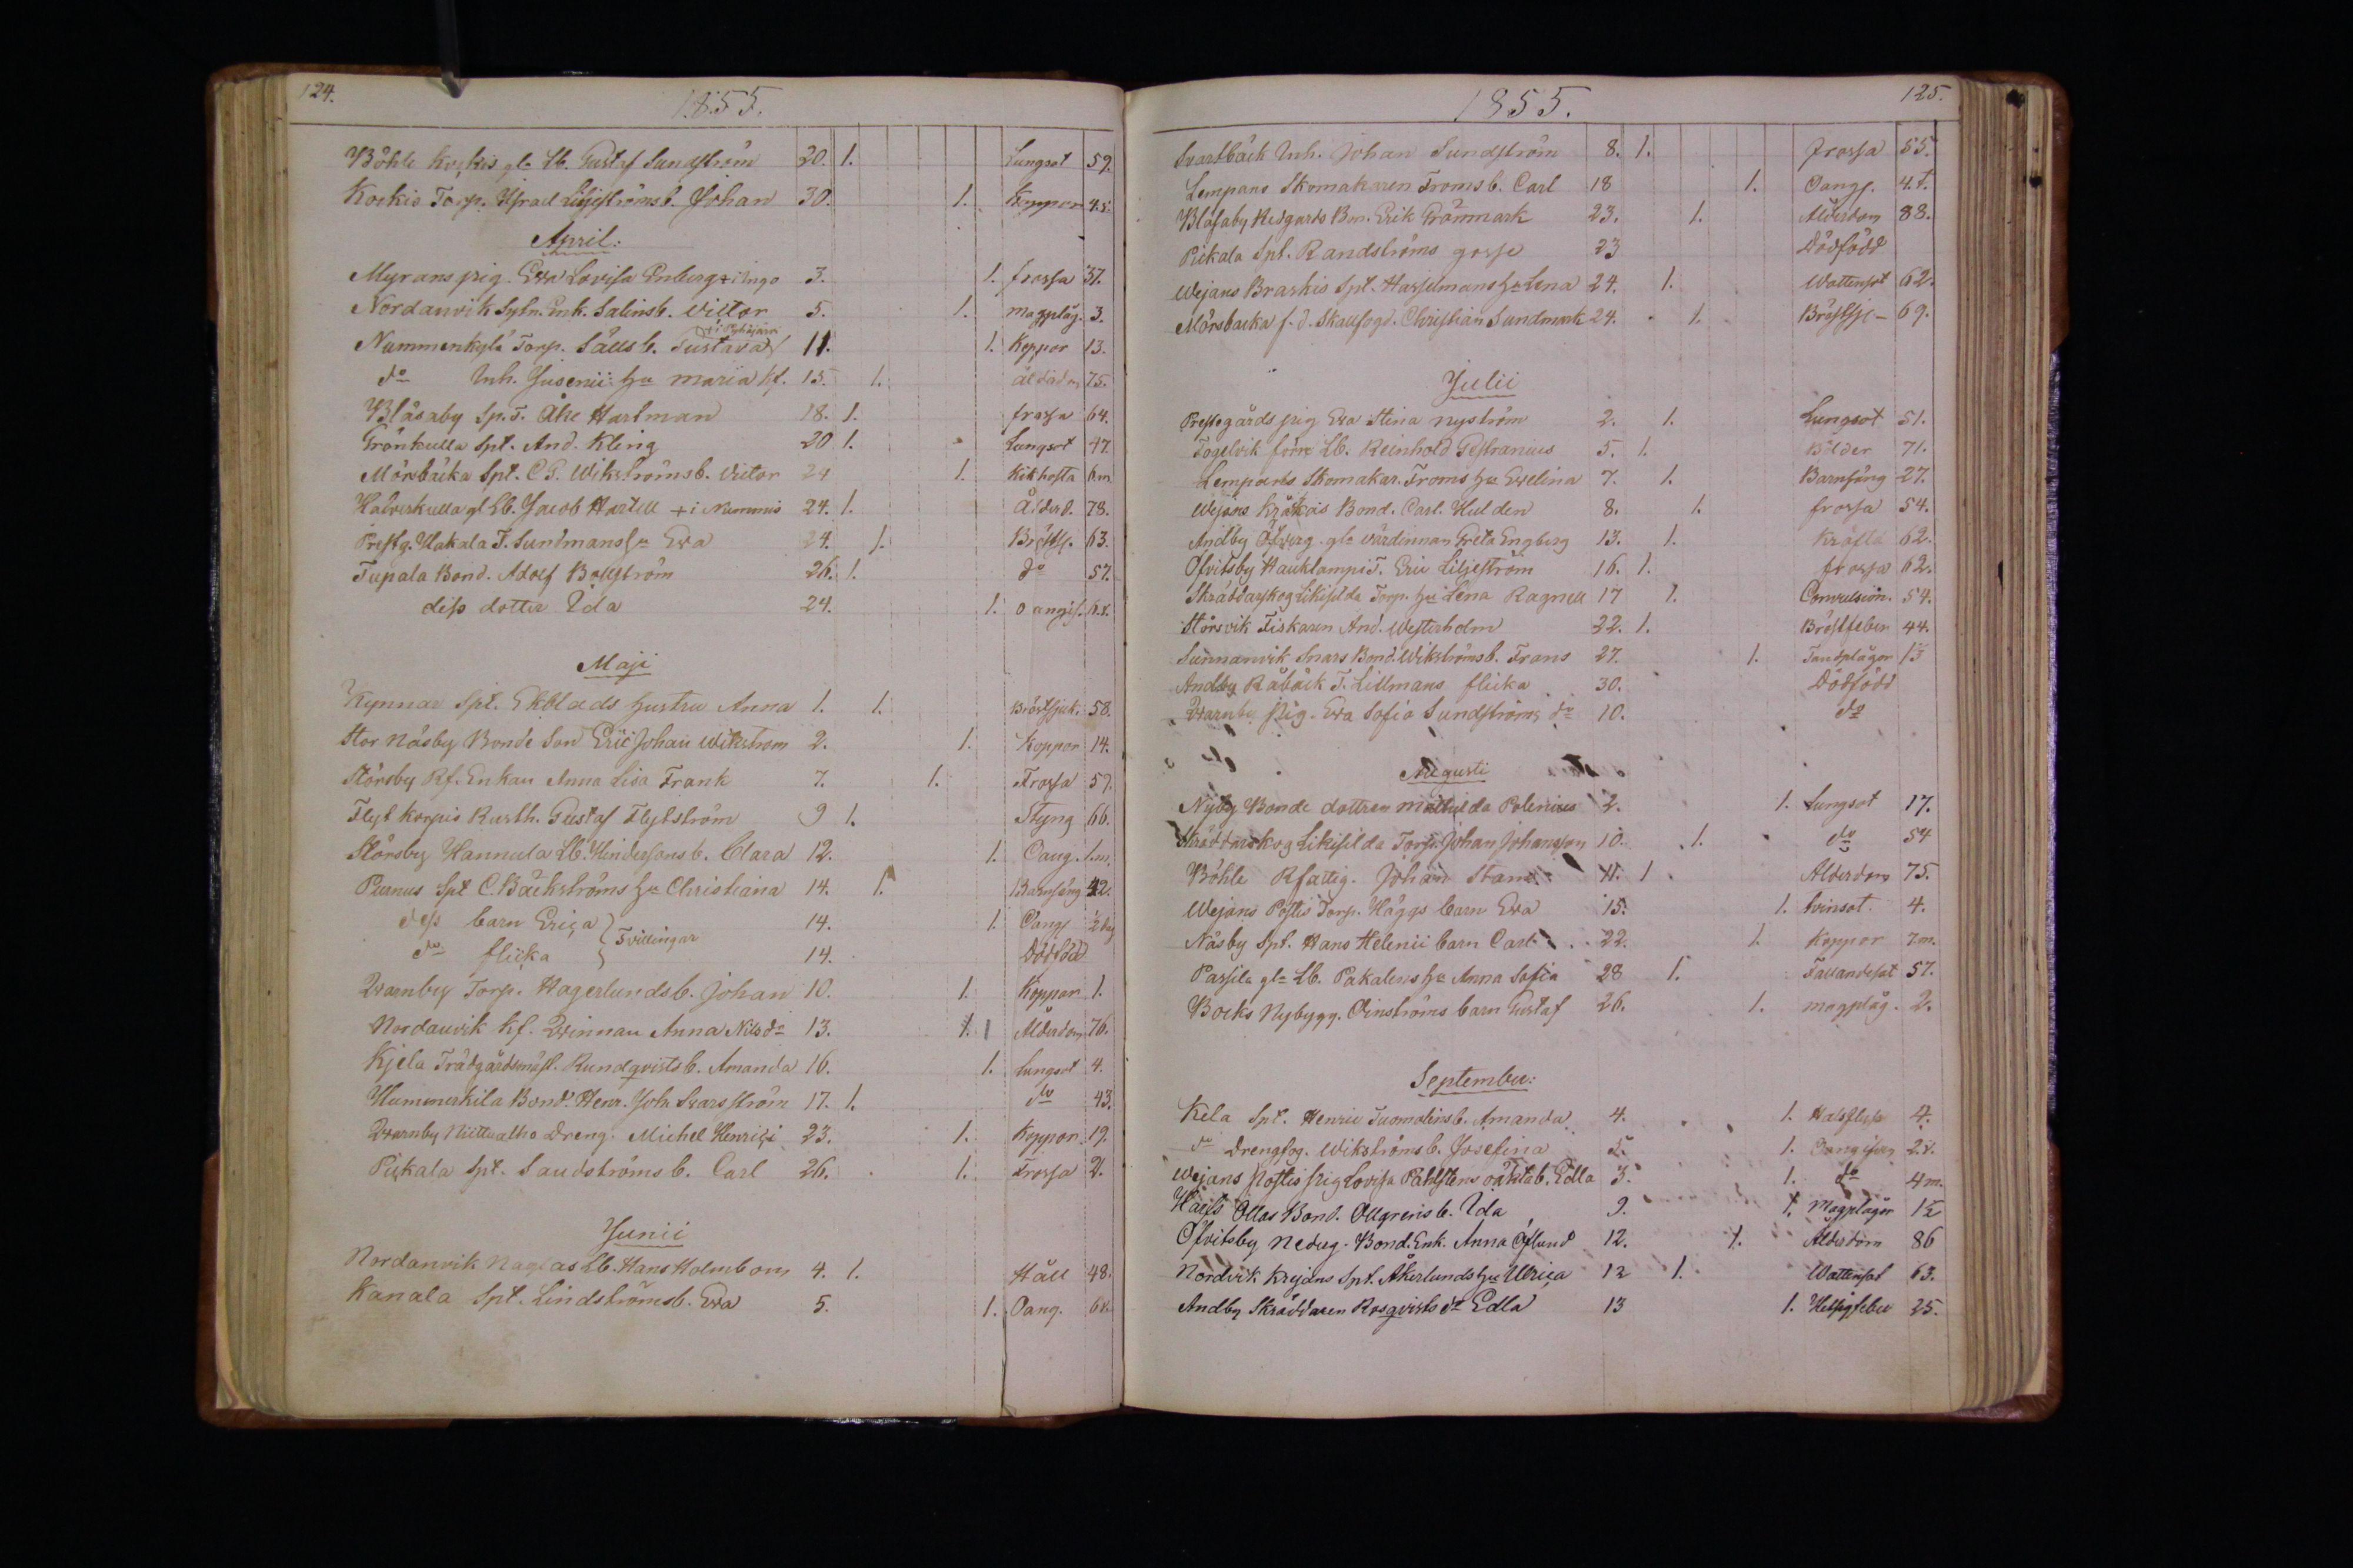 124.
1855.
Böhle Kockis gle Lb. Gustaf Sundström 20. 1. Lungsot 59.
Kockis Torp. Israel Liljeströms b. Johan 30. 1. Koppor 4.
April:
Myrans pig. Eva Lovisa Enberg + i Ingo 3. 1. frossa 37.
Nordanvik Sytn. Enk. Salins b. Victor 5. 1. magplåg. 3.
Nummenkylä Torp. Sälls b. Gustava 11. 1. Koppor 13.
do Inh. Jusenii hu Maria kf. 15. 1. ålderdom 75.
Blåsaby Sp. T. Åke Hartman 18. 1. frossa 64.
Grönkulla Spt. And. Kling 20 1. Lungsot 47.
Mörsbacka Spt. C G. Wikströms b. Victor 24 1. Kikhosta 6m
Halverkulla gl Lb. Jacob Hartell + i Nummis 24. 1. Ålderd. 78.
Prestg. Hakala T. Sundmans hu Eva 24. 1. Bröstsj. 63.
Tupala Bond. Adolf Bollström 26. 1. do 57.
dess dotter Ida 24. 1. oangif. 6 t.
Maji
Kynnar Spt. Ekblads hustru Anna 1. 1. Bröstsjuk. 58.
Stor Näsby Bonde Son Eric Johan Wikström 2. 1. Koppor 14.
Störsby Rf. Enkan Anna Lisa Frank 7. 1. Frossa 57.
Flyt Korpis Rusth. Gustaf Flytström 9 1. Styng 66.
Störsby Hannula Lb. Hindersons b. Clara 12. 1. Oang. 1.m.
Purnus Spt C. Bäckströms hu Christiana 14. 1. Barnsäng 42.
dess barn Erica } Tvillingar 14. 1. Oang ½ dy
do flicka } 14. Dödfödd
Qvarnby Torp. Hagerlunds b. Johan 10. 1. Koppor 1.
Nordanvik Kf. Qvinnan Anna Nilsdr 13. 1. 1 Ålderdom 76.
Kjela Trädgårdsmäst. Rundqvists b. Amanda 16. 1. Lungsot 4.
Hummerkila Bond. Henr. Joh. Svarsström 17. 1. do 43.
Qvarnby Niittuaho Dreng. Michel Henrici 23. 1. Koppor. 19.
Pickala Spt. Sandströms b. Carl 26. 1. Frossa 2.
Junii
Nordanvik Naglas Lb. Hans Holmbom 4. 1. Håll 48.
Kanala Spt. Lindströms b. Eva 5. 1. Oang. 6v.
1855.
125.
Svartbäck Inh. Johan Sundström 8. 1. frossa 55.
Lempans Skomakaren Froms b. Carl 18 1. Oangf. 4.t.
Blåsaby Nedgårds Bon. Erik Grönmark 23. 1. Ålderdom 88.
Pickala Spt. Randströms gosse 23 Dödfödd
Wejans Braskis Spt. Hasselmans hu Lena 24. 1. Wattensot 62.
Mörsbacka f. d. Skallfogd. Christian Sundmark 24. 1. Bröstsj- 69.
Julii
Prestegårds pig Eva Stina Nyström 2. 1. Lungsot 51.
Fogelvik förre Lb. Reinhold Gestranius 5. 1. Bölder 71.
Lempans Skomakar. Froms hu Evelina 7. 1. Barnsäng 27.
Wejans Kråkas Bond. Carl Hulden 8. 1. frossa 54.
Andby Öfverg. gle värdinnan Greta Engberg 13. 1. Kräfta 62.
Öfvitsby Hauklampi T. Eric Liljeström 16. 1. frossa 62.
Skräddarskog Likisilda Torp. hu Lena Ragnell 17 1. Convulsion. 54.
Störsvik Fiskaren And. Westerholm 22. 1. Bröstfeber 44.
Sunnanvik Snars Bond. Wikströms b. Frans 27. 1. Tandplågor
Andby Råbäck T. Lillmans flicka 30. Dödfödd
Qvarnby Pig. Eva Sofia Sundströms do 10. do
Augusti
Nyby Bonde dottren Mathilda Polenius 2. 1. Lungsot 17.
Skräddarskog Likisilda Torp. Johan Johansson 10. 1. do 54
Böhle Rfattig. Johan Stam. 11. 1 Ålderdom 75.
Wejans Postis Torp. Häggs barn Eva 15. 1. tvinsot. 4.
Näsby Spt. Hans Helenii barn Carl 22. 1. Koppor 7m.
Passila gle Lb. Pakalens hu Anna Sofia 28 1. Fallandesot 57.
Bocks Nybygg. Oinströms barn Gustaf 26. 1. magplåg. 2.
September:
Kela Spt. Henric Tuomolins b. Amanda 4. 1. Halsfluss 4.
do Drengfog. Wikströms b. Josefina 5. 1. Oangifven 2.t.
Wejans Postis Pig Lovisa Påhlstens oäkta b. Edla 3. 1. do 4m.
Ollas Bond. Ollgrens b. Ida 9. 1. Magplågor 1½
Öfvitsby Nedug. Bond. Enk. Anna Öflund 12. 1. Ålderdom 86
Nordvik Krejans Spt. Åkerlunds hu Ulrica 12 1. Wattensot 63.
Andby Skräddaren Rosqvists dr Edla 13 1. Hetsigfeber 25.